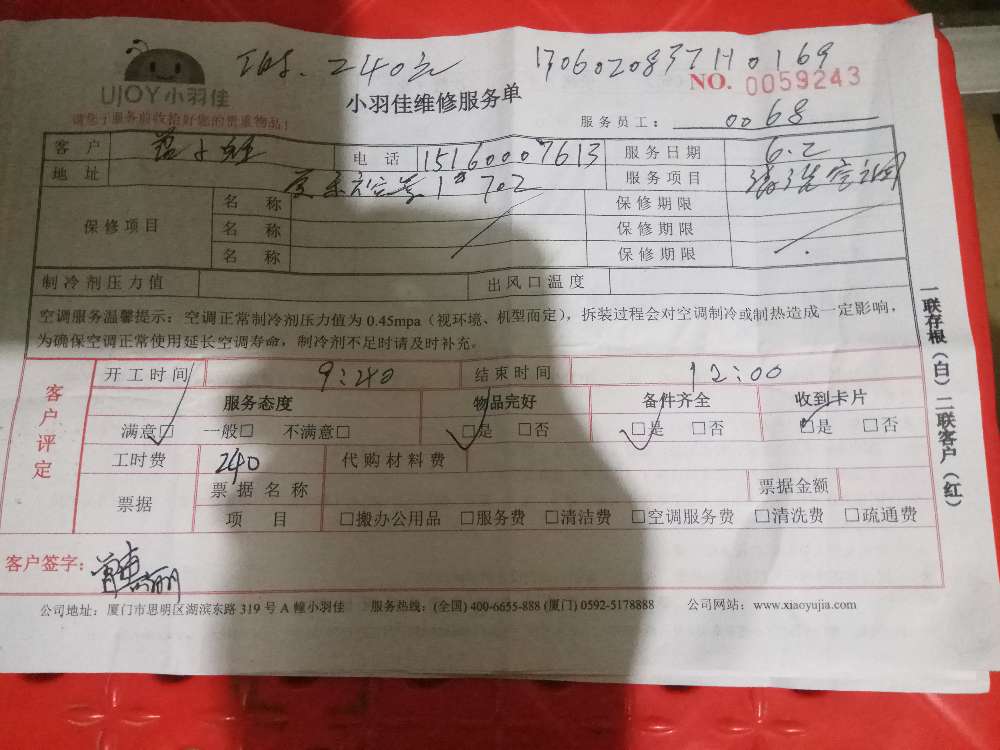 240元 17060208371410169
UJOY小羽佳
小羽佳维修服务单
NO. 0059243
请您于服务前收拾好您的贵重物品!
服务员工: 0068
客户 电话 15160007613 服务日期 6.2
地址 1#702 服务项目 清洗空调
保修项目 名称 保修期限
名称 保修期限
名称 保修期限
制冷剂压力值 出风口温度
空调服务温馨提示：空调正常制冷剂压力值为 0.45mpa（视环境、机型而定），拆装过程会对空调制冷或制热造成一定影响，
为确保空调正常使用延长空调寿命，制冷剂不足时请及时补充。
客户评定
开工时间 9:40 结束时间 12:00
服务态度 物品完好 备件齐全 收到卡片
满意□ 一般□ 不满意□ □是 □否 □是 □否 □是 □否
工时费 240 代购材料费
票据 票据名称 票据金额
项目 □搬办公用品 □服务费 □清洁费 □空调服务费 □清洗费 □疏通费
客户签字:
公司地址：厦门市思明区湖滨东路 319 号 A 幢小羽佳 服务热线：(全国) 400-6655-888 (厦门) 0592-5178888 公司网站：www.xiaoyujia.com
一联存根（白）二联客户（红）